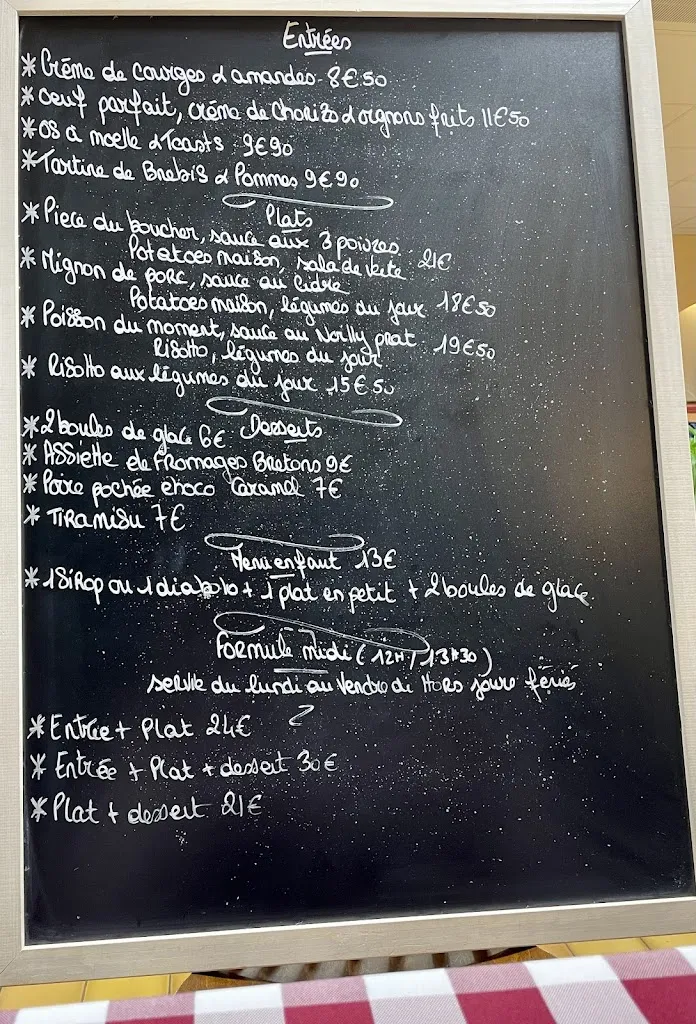 Entrées
* Crème de courges & amandes 8€50
* Oeuf parfait, crème de Chorizo & oignons frits 11€50
* OS à moelle & Toasts 9€90
* Tartine de Brebis & Pommes 9€90
Plats
* Piece du boucher, sauce aux 3 poivres
Potatoes maison, salade verte 21€
* Mignon de porc, sauce au cidre
Potatoes maison, légumes du jour 18€50
* Poisson du moment, sauce au Noilly prat
Risotto, légumes du jour 19€50
* Risotto aux légumes du jour 15€50
Desserts
* 2 boules de glace 6€
* Assiette de Fromages Bretons 9€
* Poire pochée choco Caramel 7€
* TIRAMISU 7€
Menu enfant 13€
* 1 Sirop ou 1 diabolo + 1 plat en petit + 2 boules de glace
Formule midi (12H / 13H30)
servie du lundi au Vendredi Hors jours fériés
* Entrée + Plat 24€
* Entrée + Plat + dessert 30€
* Plat + dessert 21€